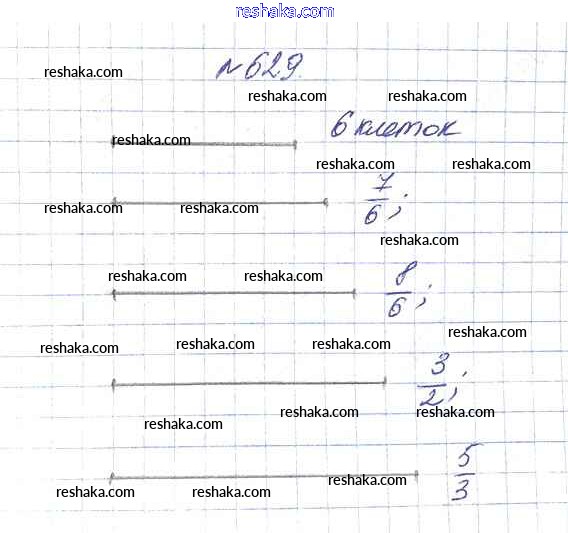 reshaka.com
№629.
reshaka.com
reshaka.com reshaka.com
6 клеток
reshaka.com
reshaka.com reshaka.com
7/6;
reshaka.com reshaka.com
reshaka.com
reshaka.com reshaka.com
8/6;
reshaka.com
reshaka.com reshaka.com reshaka.com
3/2;
reshaka.com reshaka.com
reshaka.com
5/3
reshaka.com
reshaka.com reshaka.com